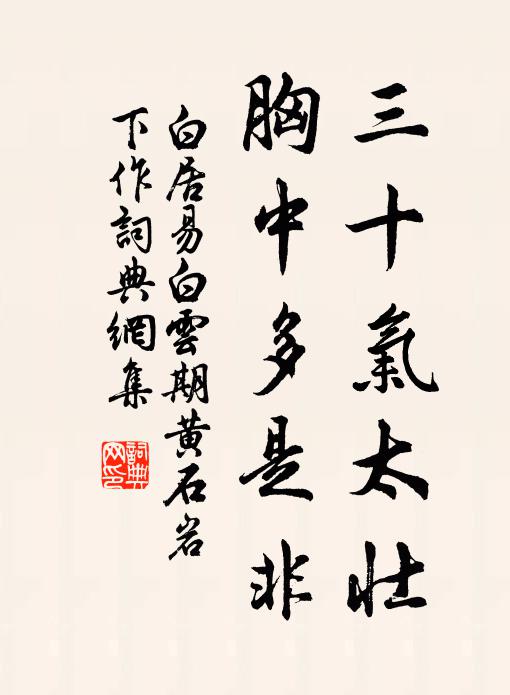 三十氣太壯
胸中多是非
白居易白雲期黄石岩
下作詞典網集
詞典
网印